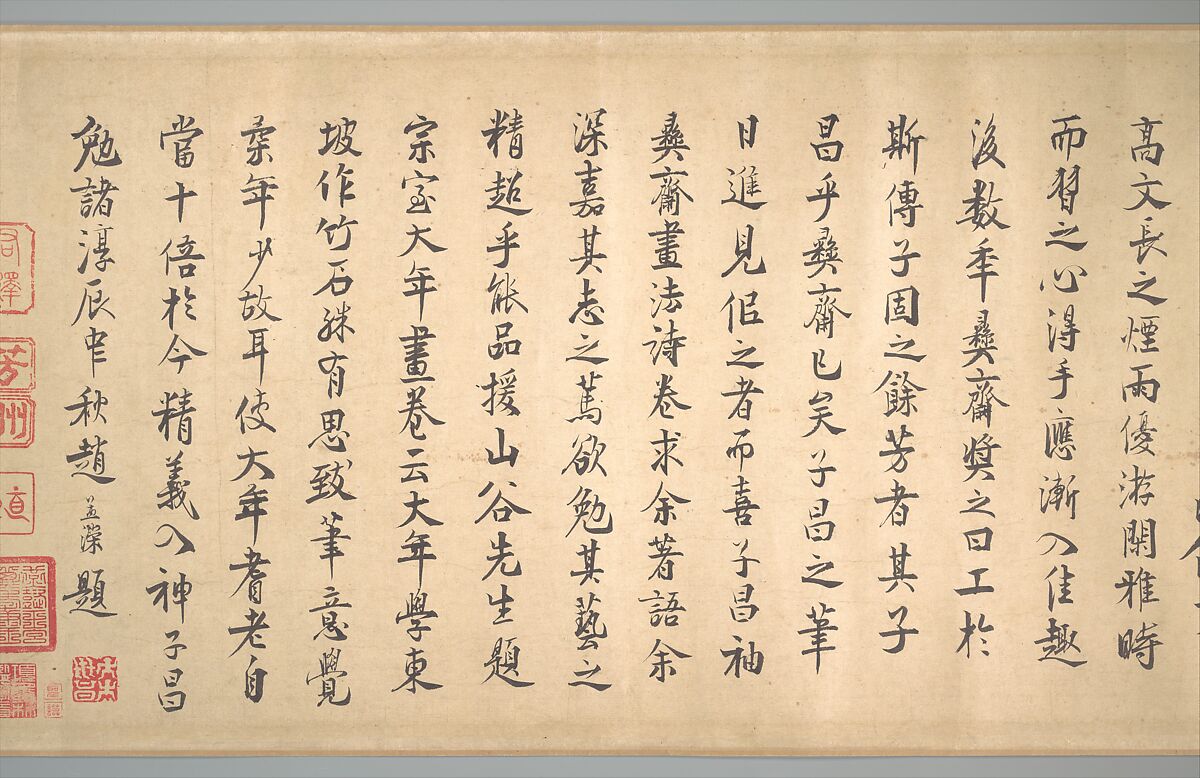 高文長之煙雨優游閑雅時
而習之心得手應漸入佳趣
後数年彞齋奬之曰工於
斯傳子固之餘芳者其子
昌乎彞齋已矣子昌之筆
日進見佀之者而喜子昌袖
彞齋畫法詩卷求余著語余
深嘉其志之篤欲勉其藝之
精超乎能品援山谷先生題
宗室大年畫卷云大年學東
坡作竹石殊有思致筆意覺
柔年少故耳使大年耆老自
當十倍於今精義入神子昌
勉諸淳辰中秋趙孟濚題